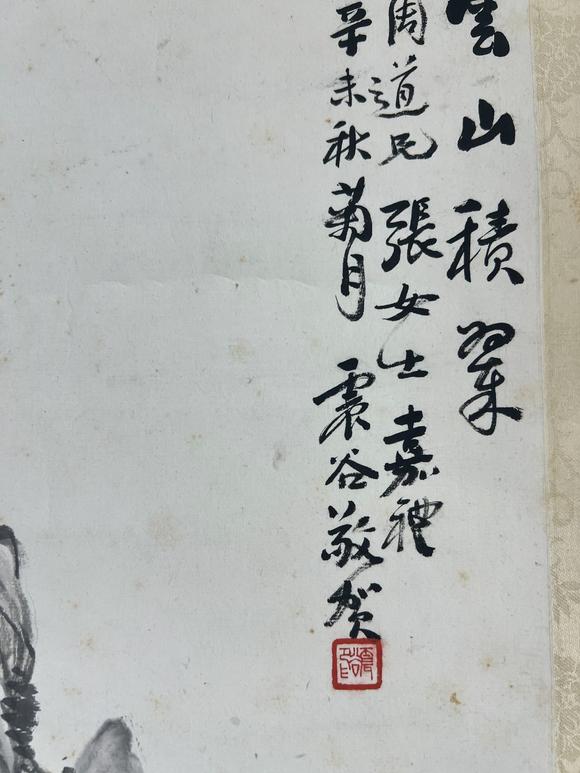 雲山積翠
周道兄張女士嘉禮
辛未秋菊月震谷敬賀